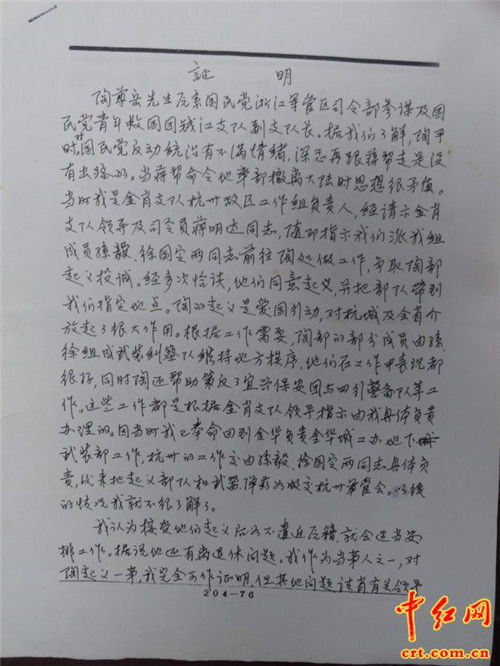 证 明
陶尊岳先生原系国民党浙江军管区司令部参谋及国
民党青年救国团钱江支队副支队长。据我们了解，陶平
时对国民党反动统治有不满情绪，深恐再跟蒋帮走是没
有出路的。当蒋帮命令他率部撤离大陆时思想很矛盾。
当时我是金肖支队杭州敌区工作组负责人，经请示金肖
支队领导及司令员蒋明达同志，随即指示我们派我组
成员孫毅、徐国定两同志前往陶处做工作，争取陶部
起义投诚。经多次恰谈，他们同意起义，并把部队带到
我们指定地点。陶的起义是爱国行动，对杭城及金肖介
放起了很大作用。根据工作需要，陶部的部分成员由孫
徐组成武装纠察队维持地方秩序，他们在工作中表现都
很好，同时陶还帮助策反了宜兴保安团与四引警备队等工
作。这些工作都是根据金肖支队领导指示由我具体负责
办理的。因当时我已奉命回到金华负责金华城工办地下
武装部工作，杭州的工作交由孫毅、徐国定两同志具体负
责，后来把起义部队和武器、弹药均移交杭州军管会。以后
的情况我就不很了解了。
我认为接受他们起义后如不遣返原籍，就会适当安
排工作。据说他还有离退休问题。我作为当事人之一，对
陶起义一事，我完全可作证明，但其他问题请肖有关领导
204—76
中红网
crt.com.cn